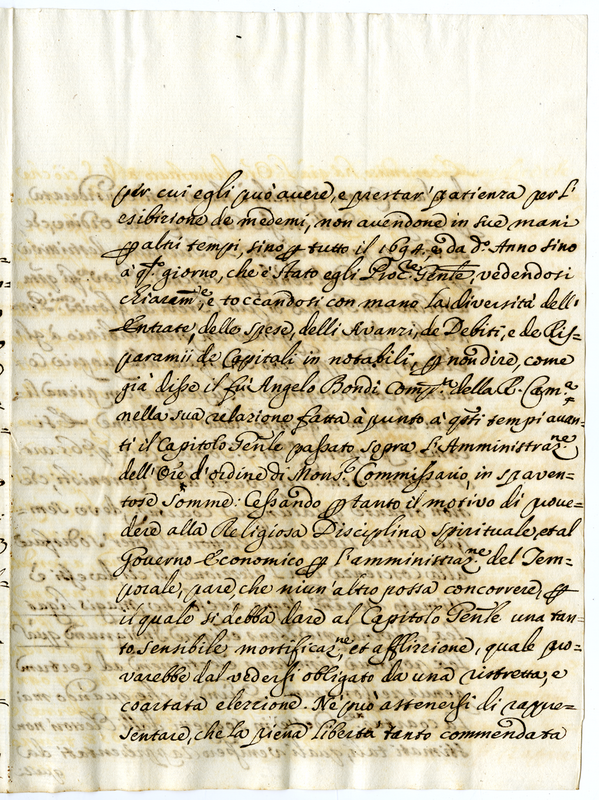 per cui egli può avere, e prestar' patienza per l'
esibizione de medemi, non avendone in sue mani
ꝑ altri tempi, sino ꝑ tutto il 1694, e da dº. Anno sino
à qº. giorno, che è stato egli Procre. Genle., vedendosi
chiaramte., e toccandosi con mano la diversità dell'
Entrate, delle spese, delli Avanzi, de Debiti, e de Ris=
paramii de Capitali in notabili, ꝑ non dire, come
già disse il fù Angelo Bondi Comp.re della R. Cam.a
nella sua relazione fatta à punto à qsti tempi avan-
ti il Capitolo Genle passato sopra l'Amministraz.ne
dell' Ore. d'ordine di Mons.r Commissario, in spaven=
tose somme: Cessando ꝑ tanto il motivo di prove=
dere alla Religiosa Disciplina spirituale, et al
Governo Economico ꝑ l'amministraz.ne del Tem=
porale, pare, che niun' altro possa concorrere, ꝑ
il quale si debba dare al Capitolo Genle una tan=
to sensibile mortificaz.ne, et afflizzione, quale pro=
varebbe dal vedersi obligato da una ristretta, e
coartata elezzione. Nè può astenersi di rappre=
sentare, che la piena libertà tanto commendata